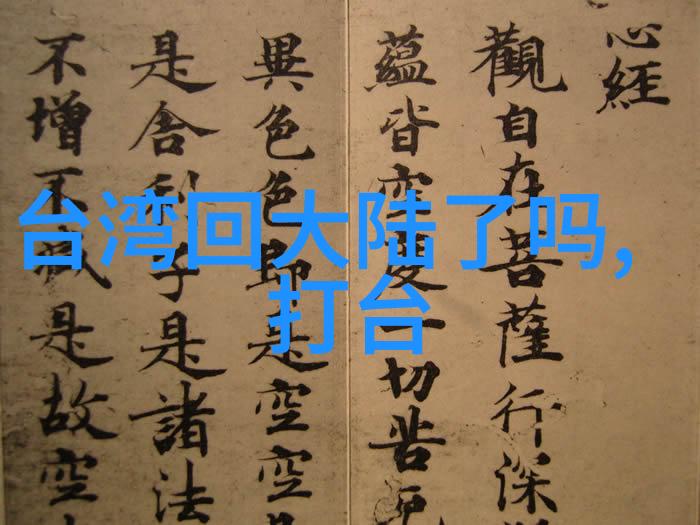 台湾回大陆了吗,
打台
心經
觀自在菩薩行深
蘊皆空度一切苦厄
異色色即是空空是
是舍利子是諸法
不增不減是故空